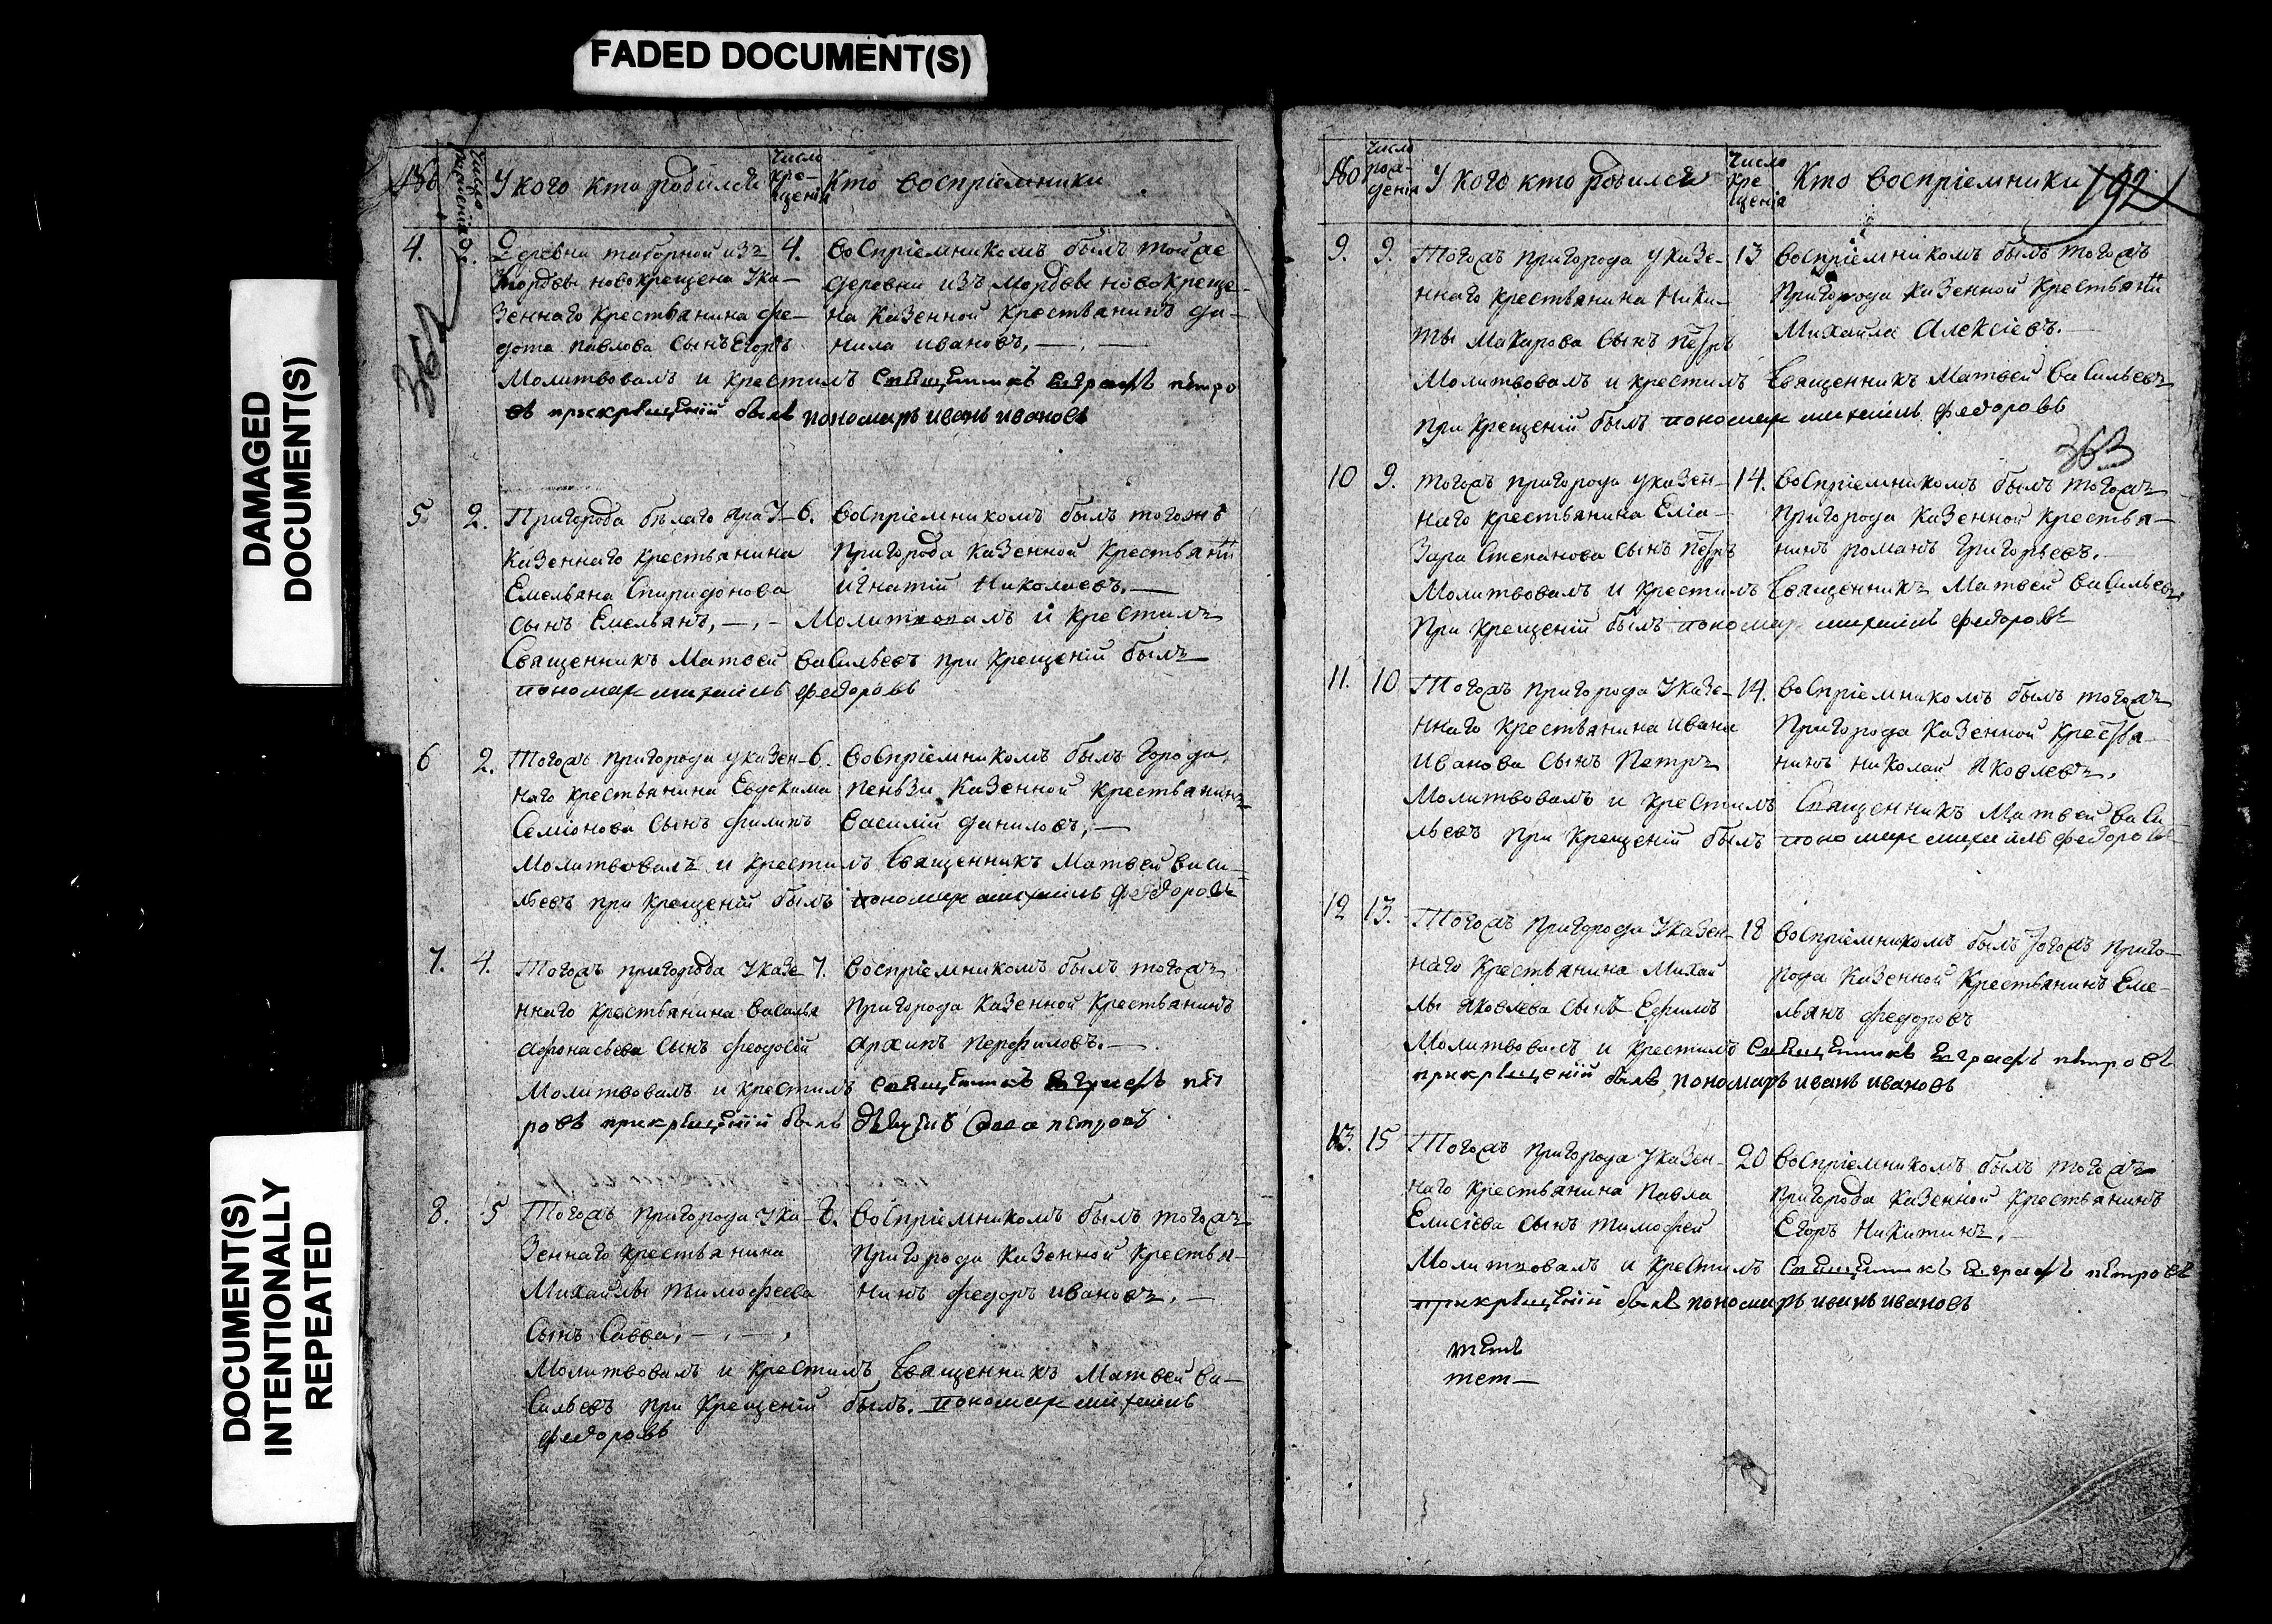 FADED DOCUMENT(S)
DAMAGED
DOCUMENT(S)
DOCUMENT(S)
INTENTIONALLY
REPEATED
У кого кто родился
Число кре-щенiя
Кто воспрiемники
4.
Деревни таборной изъ
Мордвы новокрещена Ука-
зеннаго крестьянина Фе-
дота Павлова сынъ Егоръ
4.
воспрiемникомъ былъ тойже
деревни изъ мордвы новокреще-
на казенной крестьянинъ Да-
нила Ивановъ,
Молитвовалъ и крестилъ священникъ Евграфъ петро
въ прикрещенiй былъ пономарь иванъ ивановъ
362
5
2.
Пригорода бѣлаго яра У-
казеннаго крестьянина
Емельяна Спиридонова
сынъ Емельянъ,
6.
воспрiемникомъ былъ тогожъ
Пригорода казенной крестьяни
Игнатiй Николаевъ.
Молитвовалъ и крестилъ
Священникъ Матвей васильевъ при крещенiй былъ
пономарь михаилъ федоровъ
6
2.
Тогожъ пригорода указен-
наго крестьянина Евдокима
Семiонова сынъ филипъ
6.
воспрiемникомъ былъ города
пензы казенной крестьянинъ
василiй даниловъ,
Молитвовалъ и крестилъ Священникъ Матвей васи-
льевъ при крещенiй былъ пономарь михаилъ федоровъ
7.
4.
Тогожъ пригорода указе
ннаго крестьянина василья
афонасьева сынъ феодосiй
7.
воспрiемникомъ былъ тогожъ
пригорода казенной крестьянинъ
архипъ перфиловъ.
Молитвовалъ и крестилъ священникъ Евграфъ пет
ровъ прикрещенiй былъ петровъ
8.
5
Тогожъ пригорода Ука-
зеннаго крестьянина
Михайлы тимофеева
сынъ Савва,
8.
воспрiемникомъ былъ тогожъ
пригорода казенной крестья-
нинъ федоръ ивановъ.
Молитвовалъ и крестилъ Священникъ Матвей ва-
сильевъ при крещенiй былъ. пономарь михаилъ
федоровъ
Число рож-денiя
У кого кто родился
Число кре щенiя
Кто воспрiемники
192
9.
9.
Тогожъ пригорода указе-
ннаго крестьянина Ники-
ты Макарова сынъ петръ
13
воспрiемникомъ былъ тогожъ
пригорода казенной крестьяни
Михайла Алексiевъ.
Молитвовалъ и крестилъ Священникъ Матвей васильевъ
при крещенiй былъ пономарь михаилъ федоровъ
363
10
9.
тогожъ пригорода указен-
наго крестьянина Елiа-
зара Степанова сынъ петръ
14.
воспрiемникомъ былъ тогожъ
пригорода казенной крестья-
нинъ романъ григорьевъ.
Молитвовалъ и крестилъ Священникъ Матвей васильевъ
При крещенiй былъ пономарь михаилъ федоровъ
11.
10
Тогожъ пригорода Указе-
ннаго крестьянина ивана
Иванова сынъ Петръ
14.
воспрiемникомъ былъ тогожъ
Пригорода казенной крестья-
нинъ николай яковлевъ.
Молитвовалъ и крестилъ Священникъ Матвей васи
льевъ при крещенiй былъ пономарь михаилъ федоровъ
12
13.
Тогожъ пригорода Указен-
наго крестьянина Михай
лы яковлева сынъ Ефимъ
18
воспрiемникомъ былъ тогожъ приго-
рода казенной крестьянинъ Еме-
льянъ федоровъ
Молитвовалъ и крестилъ священникъ Евграфъ петровъ
прикрещенiй былъ пономарь иванъ ивановъ
13.
15
Тогожъ пригорода Указен-
наго крестьянина Павла
Елисiева сынъ тимофей
20
воспрiемникомъ былъ тогожъ
пригорода казенной крестьянинъ
Егоръ Никитинъ.
Молитвовалъ и крестилъ священникъ Евграфъ петровъ
прикрещенiй былъ пономарь иванъ ивановъ